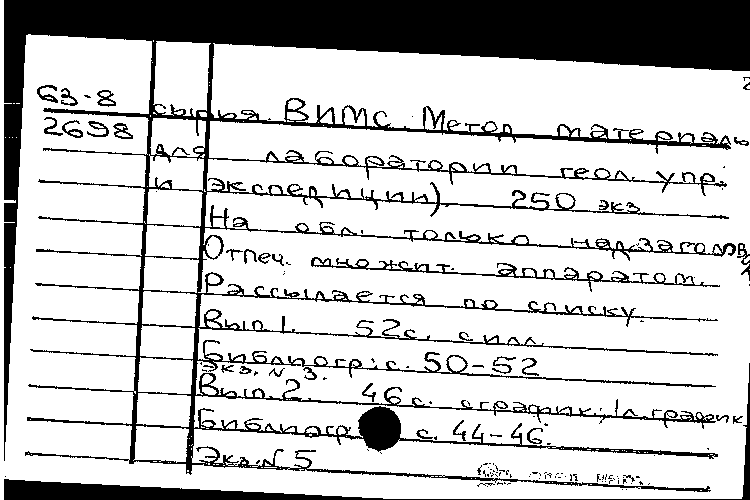 2
63-8 сырья. ВИМС. Метод материалы
2698
для лаборатории геол. упр.
и экспедиции). 250 экз.
На обл. только надзаголовок
Отпеч. множит. аппаратом.
Рассылается по списку.
Вып. 1. 52с. с илл.
Библиогр: с. 50-52
Экз. N 3.
Вып. 2. 46с. с график.; 1л. график.
Библиогр. с. 44-46.
Экз. N 5